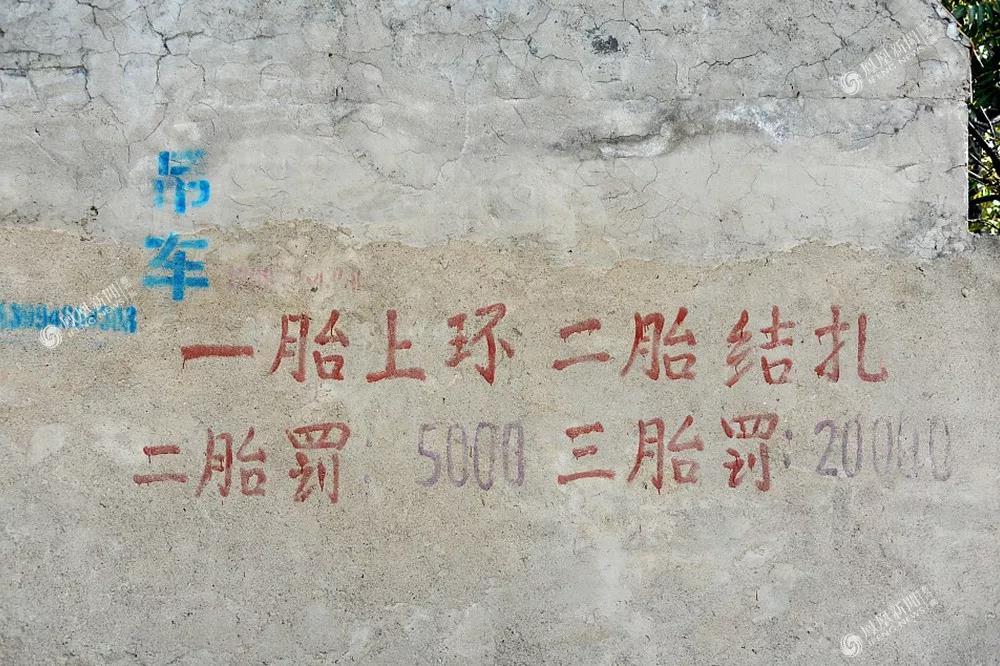 吊车
一胎上环 二胎结扎
二胎罚: 5000 三胎罚: 20000
凤凰新闻